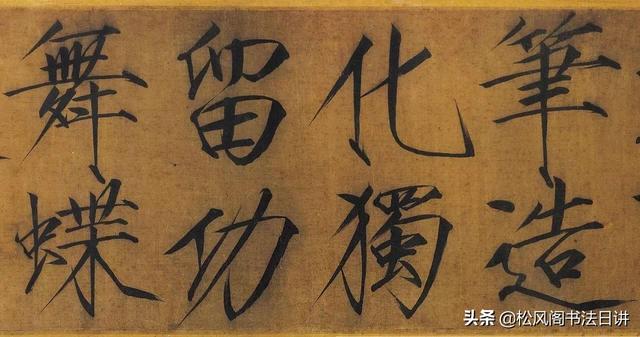 筆造
化獨
留功
舞蝶
头条 @松风阁书法日讲